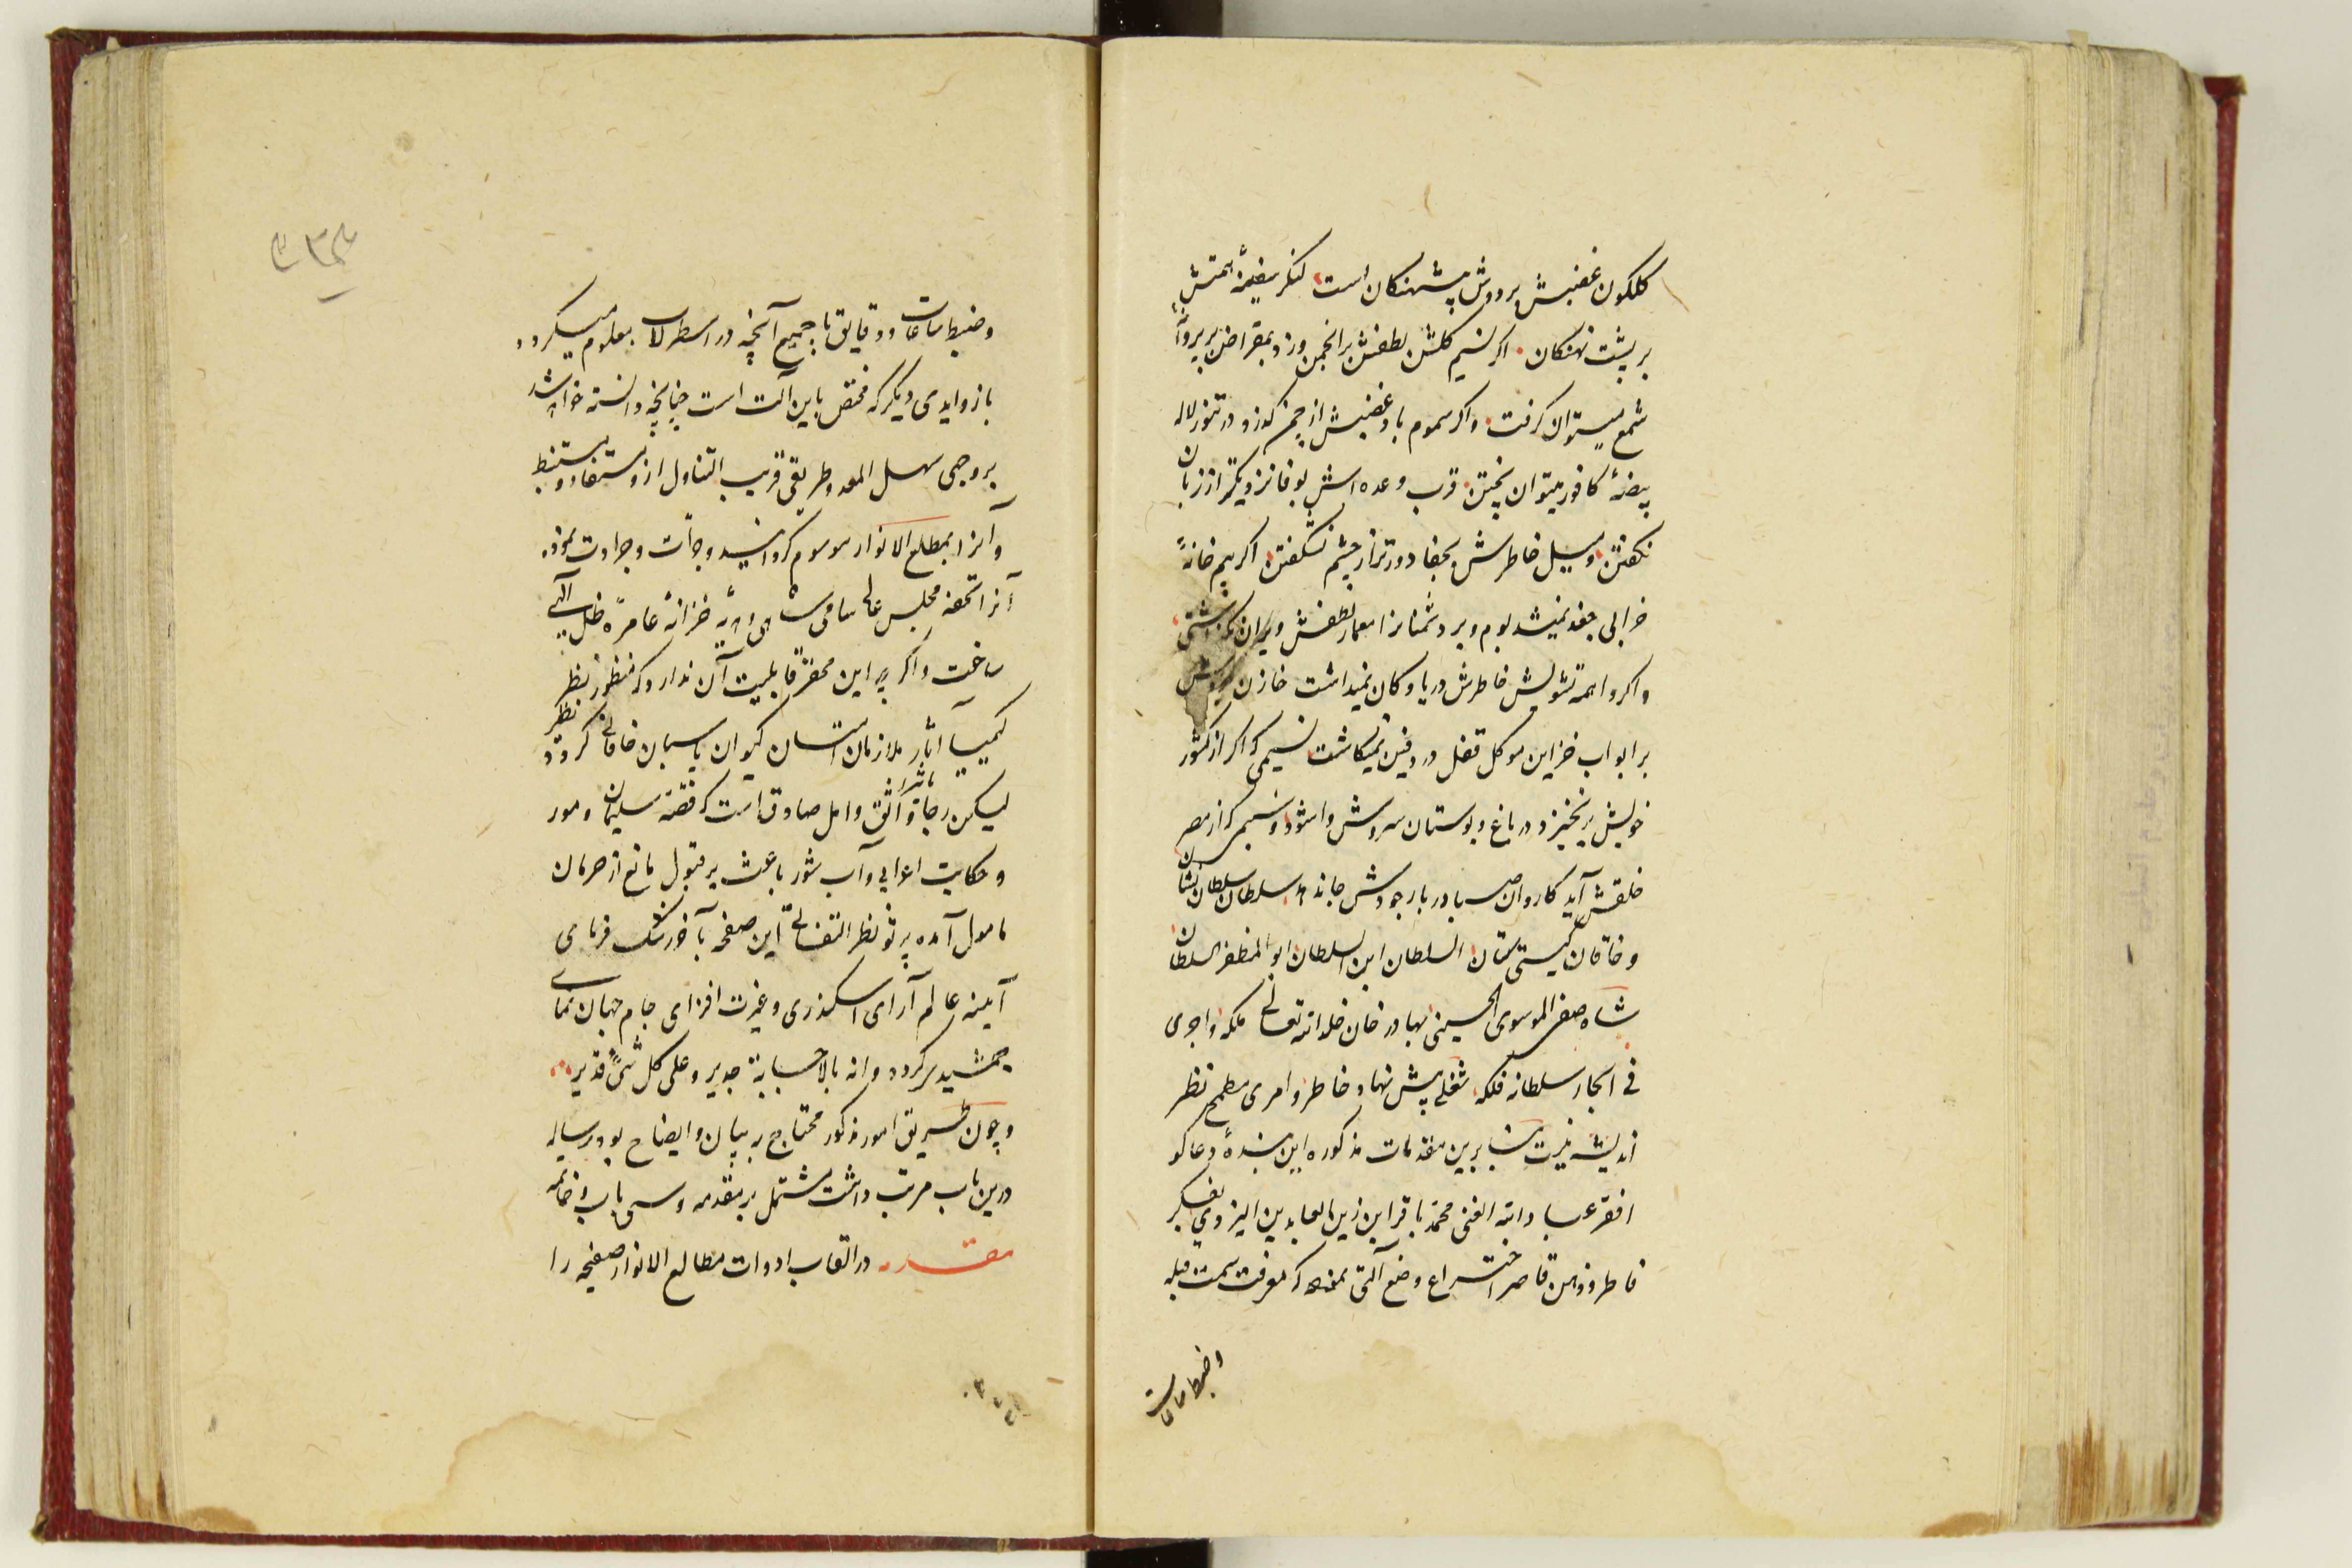 کلکون غضبش بر دوش پشهنکان است لنکر سفینهٔ همتش
بر پشت نهنکان اکر نسیم کلشن لطفش بر انجمن وزد بمقراض پر پروانه
شمع میتوان کرفت واکر سموم باد غضبش از چمن کذرد در تنور لاله
بیضهٔ کافور میتوان پختن قرب وعده اش بوفا نزدیکتر از زبان
بکفتن ومیل خاطرش بجفا دورتر از چشم نشکفتن اکر بیم خانهٔ
خرابی جغد نمیشد بوم وبر دشمنانرا معمار لطفش ویران نمیکذاشتی
واکر واهمه تشویش خاطرش دریا وکان نمیداشت خازن
بر ابواب خزاین موکل قفل در دفین نمیکاشت نسیمی که اکر از کشور
خویش برنخیزد در باغ وبوستان سروش واشود وشمیمی که از مصر
خلقش آید کاروان صبا در بار جودش جا ندهد سلطان سلطان نشان
وخاقان کیتی ستان السلطان ابن السلطان ابو المظفر السلطان
شاه صفی الموسوی الحسینی بهادر خان خلد الله تعالی ملکه واجری
فی ابحار سلطانه فلکه شغلی پیش نهاد خاطر وامری مطمح نظر
اندیشه نیست بنا برین مقدمات مذکوره این بندهٔ دعا کو
افقر عباد الله الغنی محمد باقر ابن زین العابدین الیزدی بفکر
فاطر وذهن قاصر اختراع وضع آلتی نموده که معرفت سمت قبله
وضبط ساعات
وضبط ساعات ودقایق با جمیع آنچه در اسطرلاب معلوم میکردد
با زوایدی دیکر که مختص باین آلت است چنانچه دانسته خواهد شد
بر وجهی سهل المعد وطریقی قریب التناول ازو مستفاد ومستنبط
وآنرا بمطلع الانوار موسوم کردانید وجرأت وجرادت نموده
آنرا تحفه مجلس عالی سامی شاهی وهدیه خزانهٔ عامره ظل الهی
ساخت واکر چه این محقر قابلیت آن ندارد که منظور نظر
کیمیا آثار ملازمان آستان کیوان پاسبان خاقانی کردد
لیکن رجاء واثق وامل صادق است که قصهٔ سلیمان ومور
وحکایت اعرابی وآب شور باعث بر قبول مانع از حرمان
مامول آمده پرتو نظر التفاتی این صفحه بآخر رشک فرمای
آیینه عالم آرای اسکندری وغیرت افزای جام جهان نمای
جمشیدی کردد وانه بالاحسابة جدیر وعلی کل شیء قدیر
وچون طریق امور مذکور محتاج به بیان وایضاح بود رساله
درین باب مرتب داشت مشتمل بر مقدمه وسی باب وخاتمه
مقدمه در القاب ادوات مطالع الانوار صفیحه را